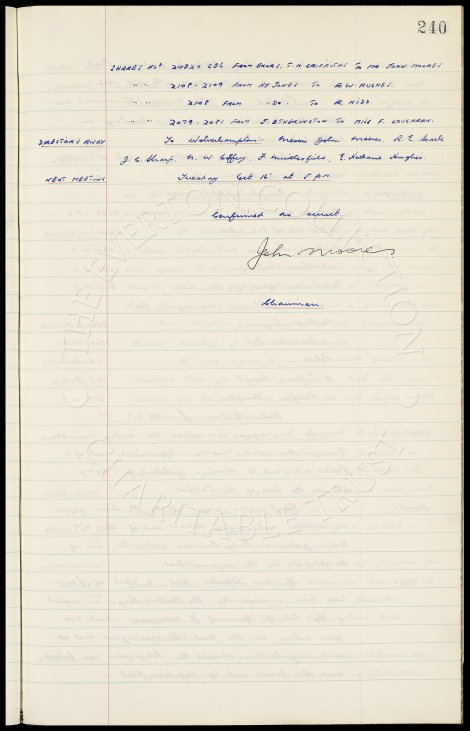 240
SHARES Nos 24824 G86 FROM EXORS. T. H. GRIFFITHS TO MR JOHN MOORES
" " 2108 - 2109 FROM HY JONES TO A.W. HUGHES.
" " 2108 FROM -DO- TO R. KIDD
" " 2079 - 2081 FROM J. ETHERINGTON TO MISS F. LOUGHRAN.
DIRECTORS AWAY To Wolverhampton: Messrs John Moores, R. E. Searle
J. C. Sharp, N. W. Coffey, F. Micklesfield, E. Holland Hughes.
NEXT MEETING Tuesday Oct 16 at 5 pm.
Confirmed as correct
John Moores.
Chairman.
THE EVERTON COLLECTION CHARITABLE TRUST